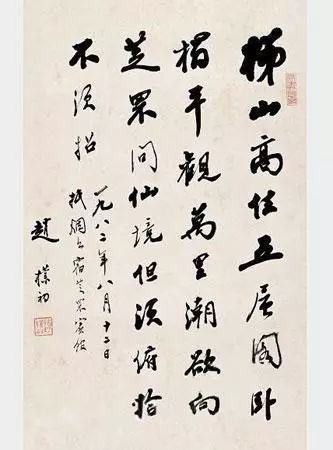 梯山高住五层阁卧
榻平觀萬里潮欲向
芝罘問仙境但须俯拾
不须招
一九八二年八月十二日
抵烟台宿芝罘賓館
趙樸初